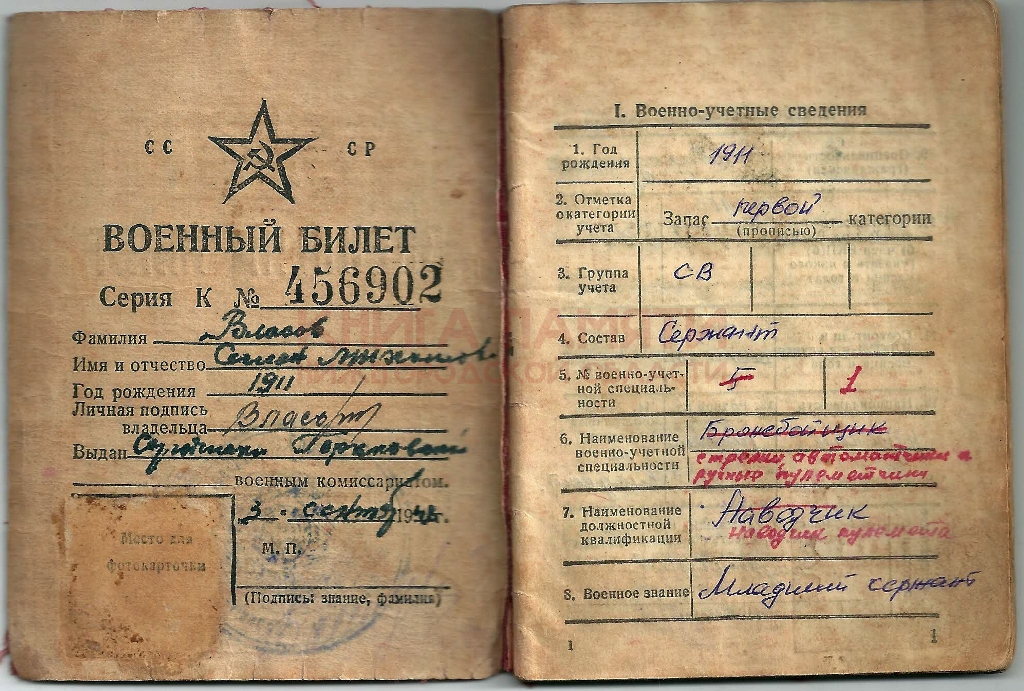 СС СР
ВОЕННЫЙ БИЛЕТ
Серия К № 456902
Фамилия Власов
Имя и отчество
Год рождения 1911
Личная подпись
владельца
Выдан
военным комиссариатом.
3
М. П.
Место для
фотокарточки
(Подпись: звание, фамилия)
I. Военно-учетные сведения
1. Год
рождения
1911
2. Отметка
о категории
учета
Запас первой категории
(прописью)
3. Группа
учета
СВ
4. Состав Сержант
5. № военно-учет-
ной специаль-
ности
5 1
6. Наименование
военно-учетной
специальности
Бронебойщик
стрелки автоматчики и
ручные пулеметчики
7. Наименование
должностной
квалификации
Наводчик
наводчик пулемета
8. Военное звание Младший сержант
1 1
КНИГА ПАМЯТИ